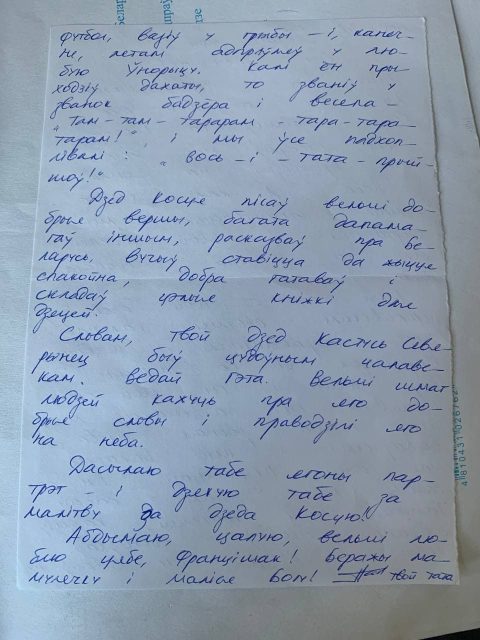 футбол, вазіў у грыбы – і,канеч-
не, летам адпраўляў у лю-
бую Ўнорыцу. Калі ён пры-
ходзіў дахаты, то званіў у
званок бадзёра і весела –
"Там-там-тарарам-тара-тара-
тарам!", і мы ўсе падхоп-
лівалі: "вось-і-тата-прый-
шоў!"
Дзед Косце пісаў вельмі до-
брыя вершы, багата дапама-
гаў іншым, расказваў пра Бе-
ларусь, вучыў ставіцца да жыцця
спакойна, добра гатаваў і
складаў цэлыя кніжкі для
дзяцей.
Словам, твой дзед Кастусь Севя-
рынец быў цудоўным чалаве-
кам. Ведай гэта. Вельмі шмат
людзей кажуць пра яго до-
брыя словы і праводзілі яго
на неба.
Дасылаю табе ягоны пар-
трэт – і дзякую табе за
малітву да дзеда Косцю!
Абдымаю, цалую, вельмі лю-
блю цябе, Францішак! Беражы ма-
мулечку і маліся Богу! твой тата
4 810431 026762